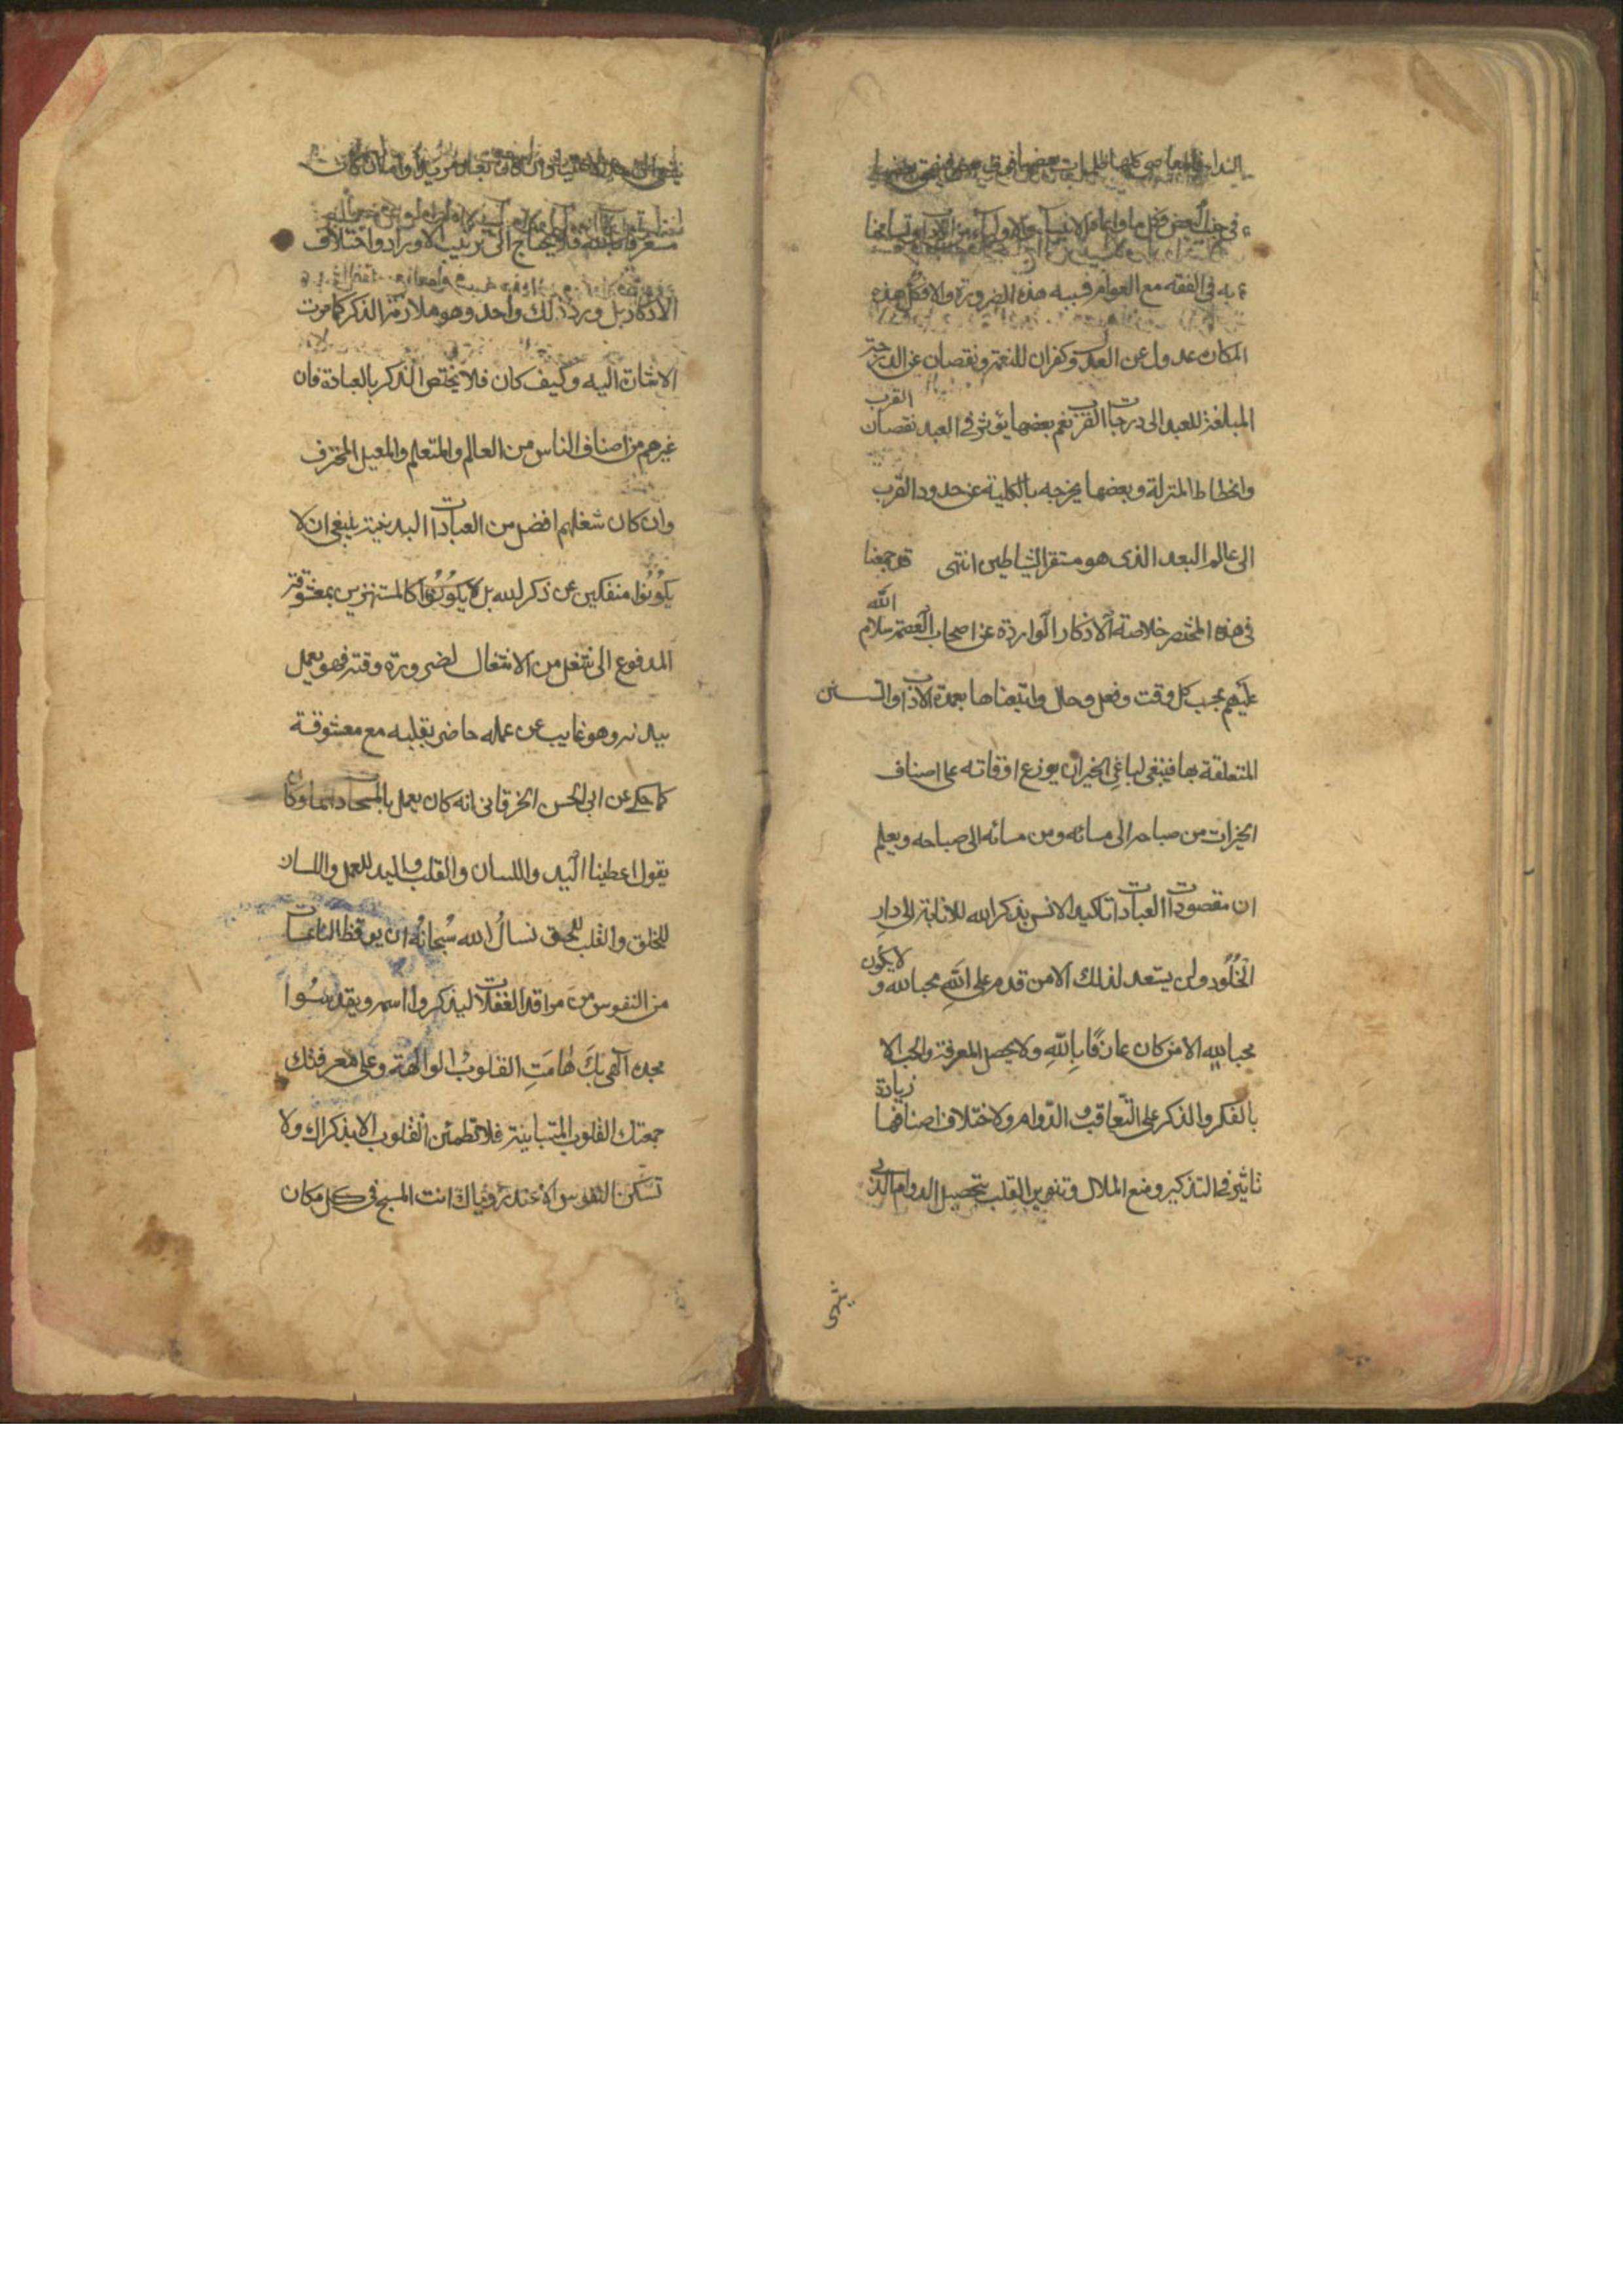 في حق البعض فكل ما
به في الفقه مع العوام فسببه هذه الضرورة والا فكل هذه
المكان عدول عن العدل وكفران للنعمة ونقصان عن الدرجة
المبلغة للعبد الى درجات القرب نعم بعضها يؤثر في العبد نقصان القرب
وانحطاط المنزلة وبعضها يخرجه بالكلية عن حدود القرب
الى عالم البعد الذى هو مستقر الشياطين انتهى قد جمعنا
في هذه المختصر خلاصة الاذكار الواردة عن اصحاب العصمة سلام الله
عليهم بحسب كل وقت وفعل وحال واتبعناها بعمدة الاداب والسنن
المتعلقة بها فينبغي لباغي الخير ان يوزع اوقاته على اصناف
الخيرات من صباحه الى مسائه ومن مسائه الى صباحه ويعلم
ان مقصود العبادات تاكيد الانس بذكر الله للانابة الى دارِ
الخُلُود ولن يستعد لذلك الا من قدم على اللَّهِ محبا لله و لا يكون
محبا لله الا من كان عارفًا بِاللَّهِ ولا يحصل المعرفة والحب الا
بالفكر والذكر على التّعاقب و الدّوام ولاختلاف اصنافها زيادة
تاثير في التذكير ومنع الملال وتنوير القلب بتحصيل الدوام الذي
معرفة بالله فلا يحتاج الى ترتيب الاوراد واختلاف
الاذكار بل ورد ذلك واحد وهو ملازمة الذكر كما مرت
الاشارة اليه وكيف كان فلا يختص الذكر بالعبادة فان
غيرهم من اصناف الناس من العالم والمتعلم والمعيل المحترف
وان كان شغلهم افضل من العبادات البدنية ينبغي ان لا
يكوُنُوا منفكين عن ذكر الله بل يكوُنُوا كالمستهترين بمعشوقة
المدفوع الى شغل من الاشغال لضرورة وقته فهو يعمل
ببدنه وهو غايب عن عمله حاضر بقلبه مع معشوقة
كما حكي عن ابي الحسن الخرقاني انه كان يعمل بالمسحاة دائما وكان
يقول اعطينا اليد واللسان والقلب فاليد للعمل واللسان
للخلق والقلب للحق نسالُ الله سُبحانهُ ان يوقظ النائمات
من النفوس من مراقد الغفلات ليذكروا اسمه ويقدسُوا
مجده الهي بكَ هَامَتِ القلوبُ الوالهة وعلى معرفتك
جمعت القلوب المتباينة فلا تطمئن القلوب الا بذكراك ولا
تسكن النفوس الا عند رؤياك انت المسبح في كل مكان